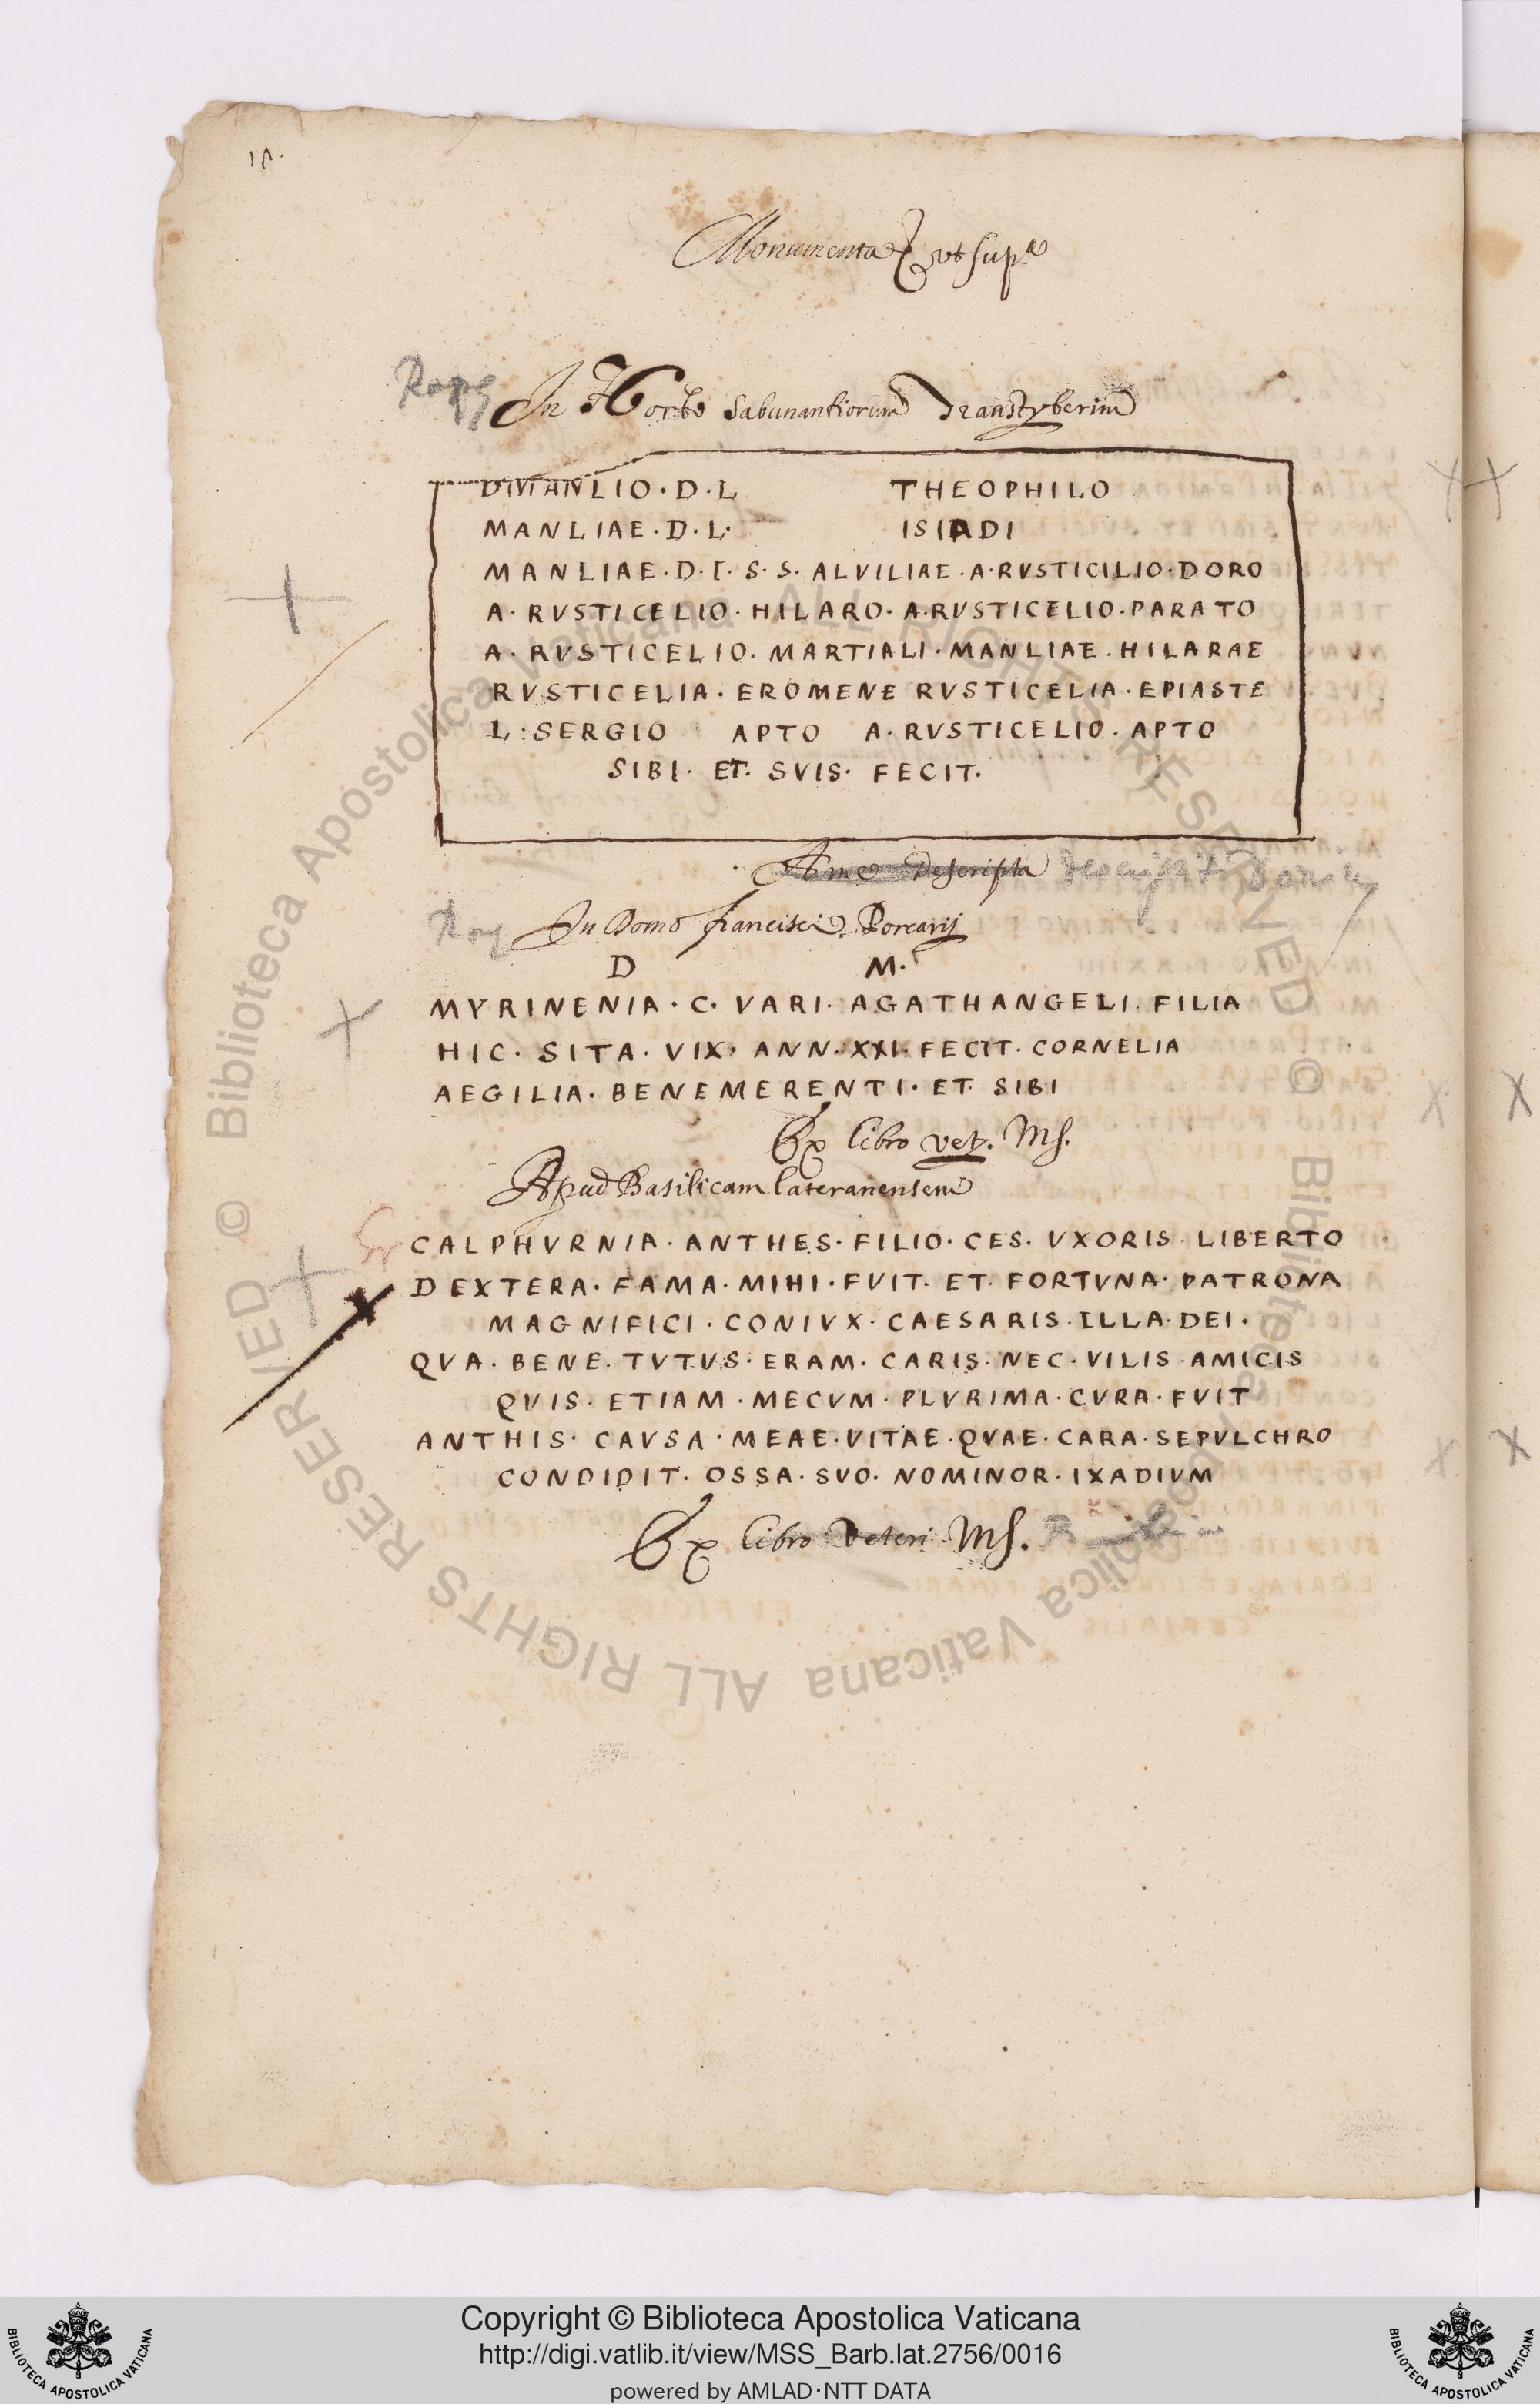 Monumenta & vt sup.a
In Horto Sabunantiorum Transtyberim
D MANLIO · D · L THEOPHILO
MANLIAE · D · L · ISIADI
MANLIAE · D · I · S · S · ALVILIAE · A · RVSTICILIO · DORO
A · RVSTICELIO · HILARO · A · RVSTICELIO · PARATO
A · RVSTICELIO · MARTIALI · MANLIAE · HILARAE
RVSTICELIA · EROMENE RVSTICELIA · EPIASTE
L : SERGIO APTO A · RVSTICELIO · APTO
SIBI · ET · SVIS · FECIT ·
A me Descripta
In Domo francisci Porcarij
D M ·
MYRINENIA · C · VARI · AGATHANGELI · FILIA
HIC · SITA · VIX · ANN · XXI · FECIT · CORNELIA
AEGILIA · BENEMERENTI · ET · SIBI
Ex libro vet. MS.
Apud Basilicam lateranensem
CALPHVRNIA · ANTHES · FILIO · CES · VXORIS · LIBERTO
DEXTERA · FAMA · MIHI · FVIT · ET · FORTVNA · PATRONA
MAGNIFICI · CONIVX · CAESARIS · ILLA · DEI ·
QVA · BENE · TVTVS · ERAM · CARIS · NEC · VILIS · AMICIS
QVIS · ETIAM · MECVM · PLVRIMA · CVRA · FVIT
ANTHIS · CAVSA · MEAE · VITAE · QVAE · CARA · SEPVLCHRO
CONDIDIT · OSSA · SVO · NOMINOR · IXADIVM
Ex libro Veteri MS.
© Biblioteca Apostolica Vaticana ALL RIGHTS RESERVED © Biblioteca Apostolica Vaticana ALL RIGHTS RESERVED
Copyright © Biblioteca Apostolica Vaticana
http://digi.vatlib.it/view/MSS_Barb.lat.2756/0016
powered by AMLAD·NTT DATA
BIBLIOTECA APOSTOLICA VATICANA
BIBLIOTECA APOSTOLICA VATICANA